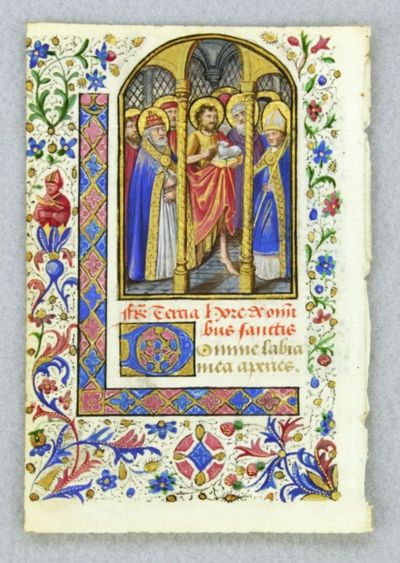 Tercia Hore de omi
bus sanctis
Domine labia
mea aperies.